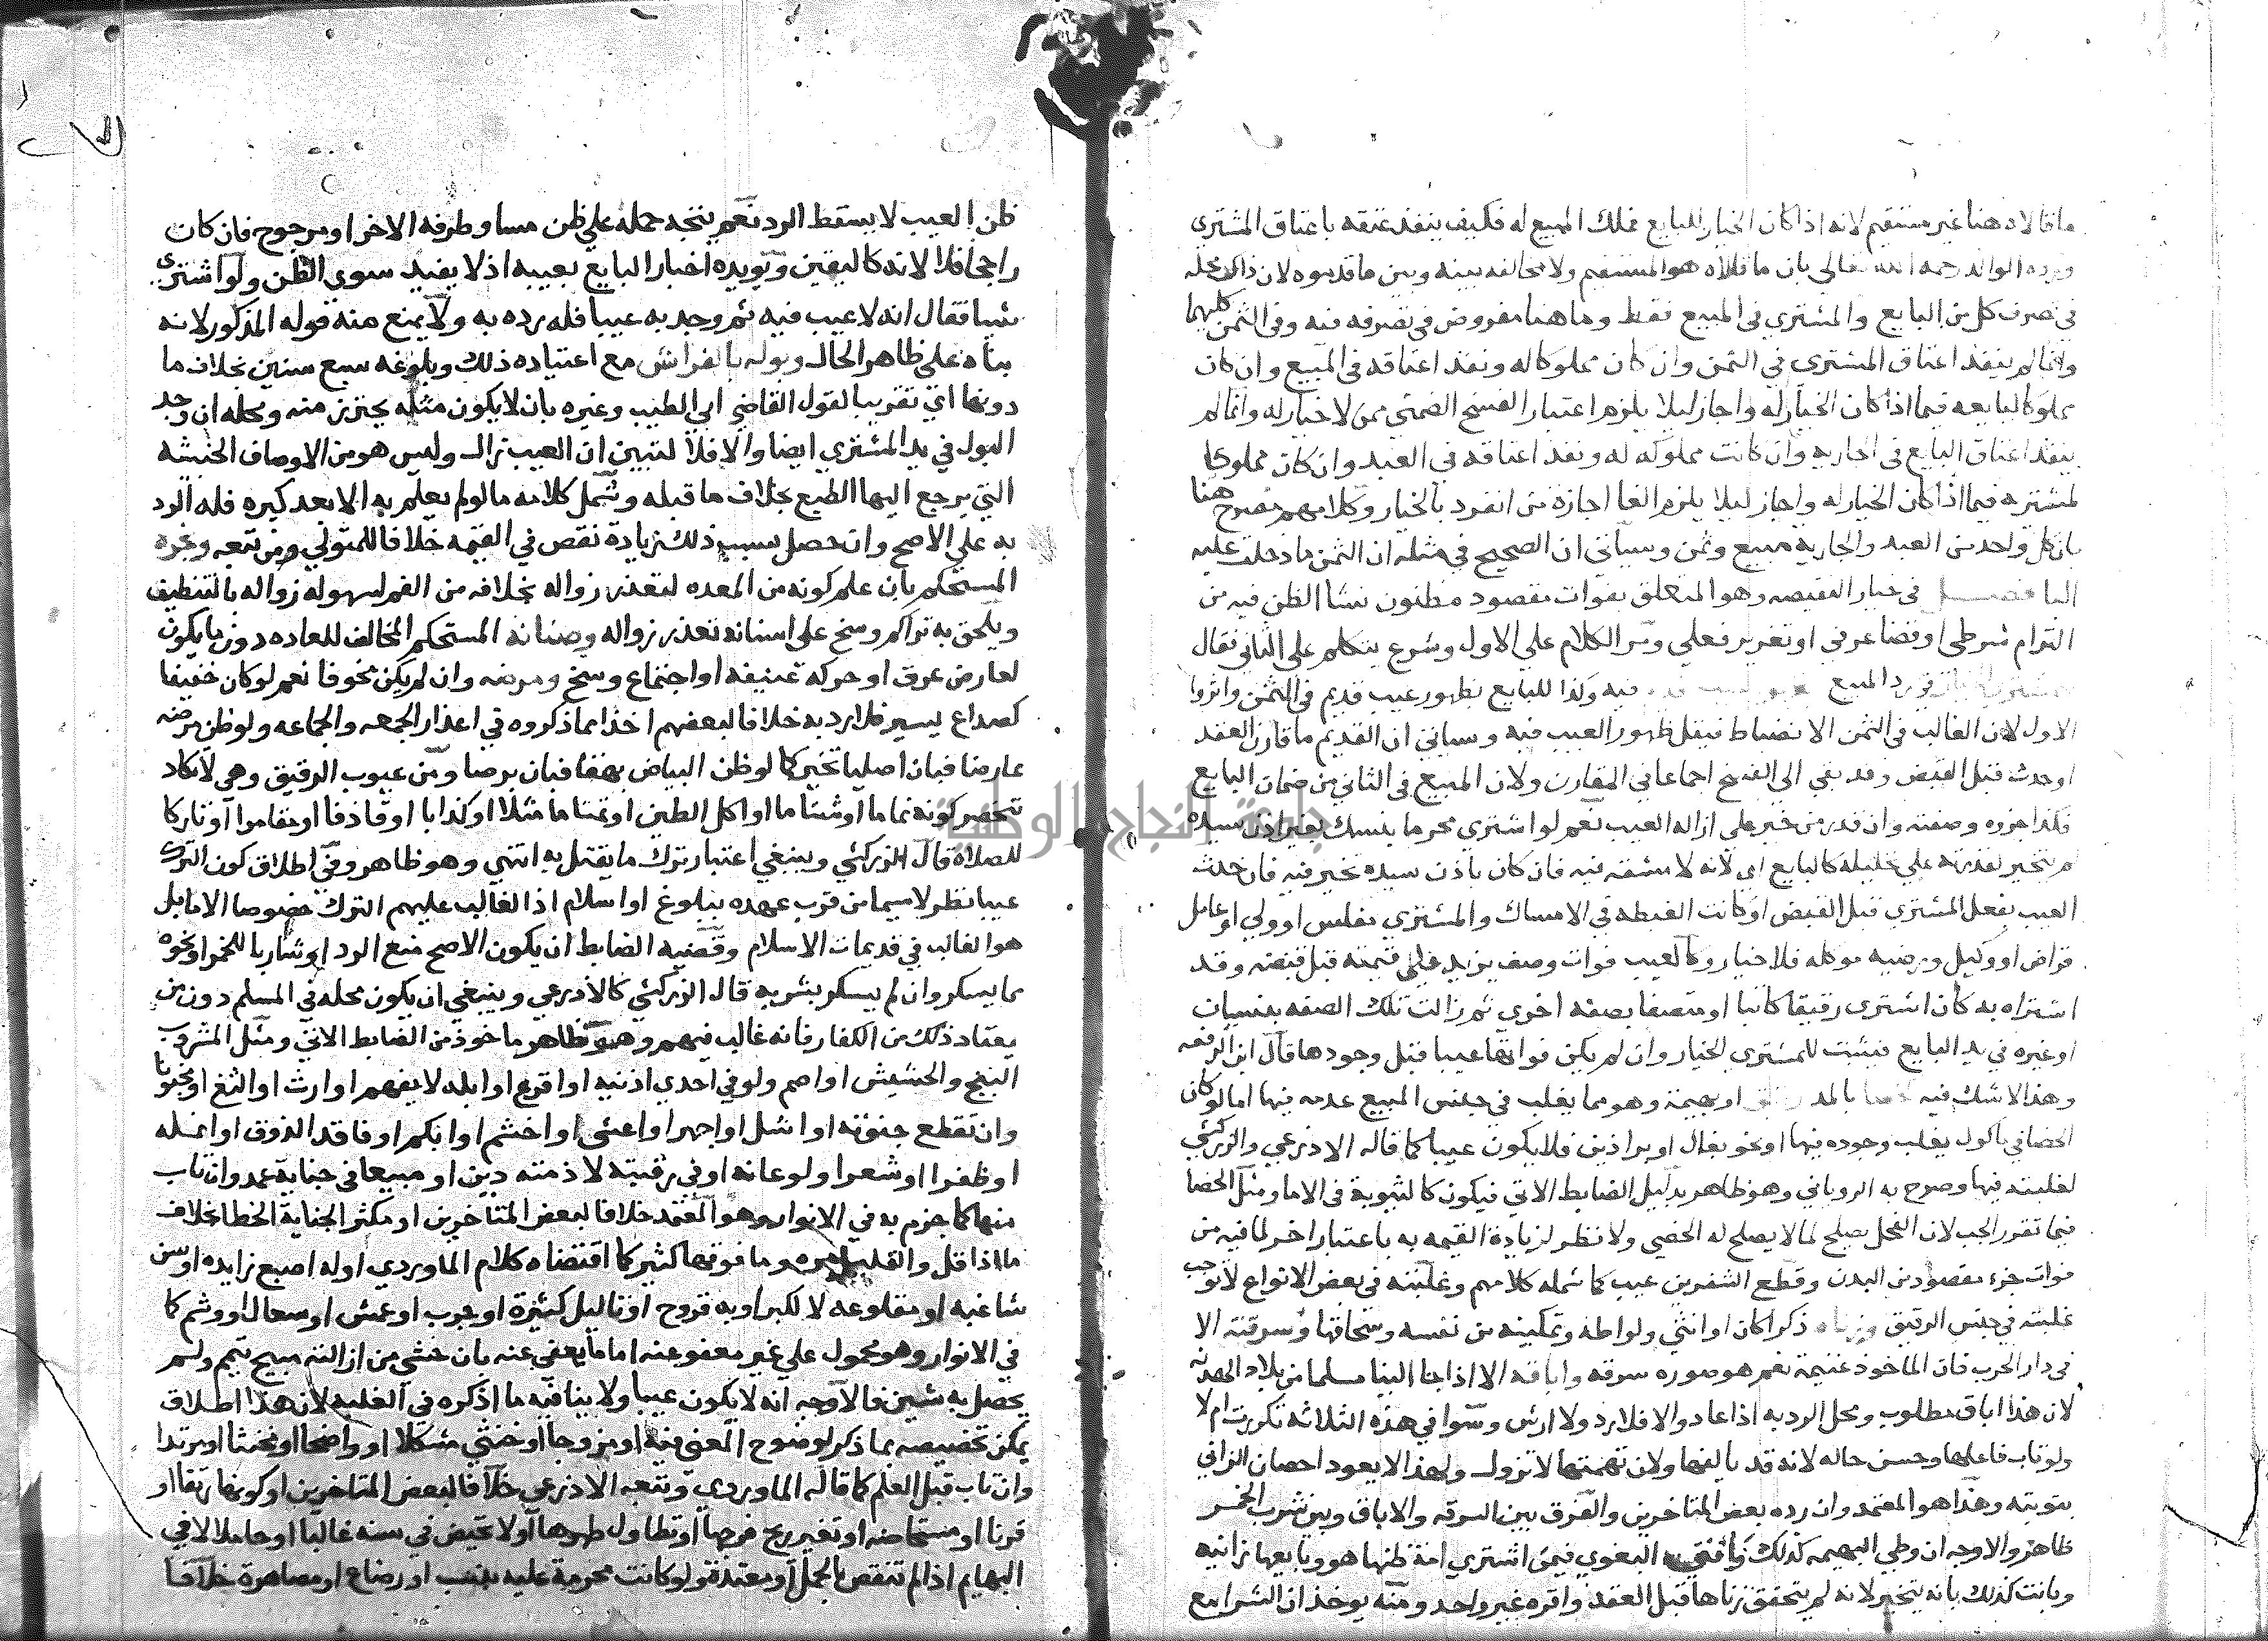 ما قالاه هنا غير مستقيم لانه اذا كان الخيار للبايع فملك المبيع له فكيف ينفذ عتقه باعتاق المشتري
ورده الوالد رحمه الله تعالى بان ما قالاه هو المستقيم ولا مخالفه بينه وبين ما قدموه لان ذاك محله
في تصرف كل من البايع والمشتري في المبيع فقط وما هنا مفروض في تصرفه فيه وفي الثمن كليهما
وانما لم ينفذ اعتاق المشتري في الثمن وان كان مملوكا له ونفذ اعتاقه في المبيع وان كان
مملوكا لبايعه فيما اذا كان الخيار له واجاز ليلا يلزم اعتبار الفسخ الضمني ممن لا خيار له وانما لم
ينفذ اعتاق البايع في الجاريه وان كانت مملوكه له ونفذ اعتاقه في العبد وان كان مملوكا
لمشتريه فيما اذا كان الخيار له واجاز ليلا يلزم الغا اجازة من انفرد بالخيار وكلامهم مصرح هنا
بان كل واحد من العبد والجاريه مبيع وثمن وسياتي ان الصحيح في مثله ان الثمن ما دخلت عليه
البا فصل في خيار النقيصه وهو المتعلق بفوات مقصود مظنون نشا الظن فيه من
التزام شرطي او قضا عرفي او تغرير فعلي ومر الكلام على الاول وشرع يتكلم على الثاني فقال
للمشتري الخيار في رد المبيع بظهور عيب قديم فيه وكذا للبايع بظهور عيب قديم في الثمن واثروا
الاول لان الغالب في الثمن الانضباط فيقل ظهور العيب فيه وسياتي ان القديم ما قارن العقد
او حدث قبل القبض وقد بقي الى الفسخ اجماعا في المقارن ولان المبيع في الثاني من ضمان البايع
فكذا جزوه وصفته وان قدر من خير على ازاله العيب نعم لو اشتري محرما بنسك بغير اذن سيده
لم يتخير لقدرته على تحليله كالبايع اي لانه لا مشقه فيه فان كان باذن سيده تخير فيه فان حدث
العيب بفعل المشتري قبل القبض او كانت الغبطه في الامساك والمشتري مفلس او ولي او عامل
قراض او وكيل ورضيه موكله فلا خيار وكالعيب فوات وصف يزيد في قيمته قبل قبضه وقد
اشتراه به كان اشتري رقيقا كاتبا او متصفا بصفه اخري ثم زالت تلك الصفه بنسيان
او غيره في يد البايع فيثبت للمشتري الخيار وان لم يكن فواتها عيبا قبل وجودها قال ابن الرفعه
وهذا لا شك فيه كخصا بالمد رقيق او بهيمة وهو مما يغلب في جنس المبيع عدمه فيها اما لو كان
الخصا في ماكول يغلب وجوده فيها او نحو بغال او براذين فلا يكون عيبا كما قاله الاذرعي والزركشي
لغلبته فيها وصرح به الروياني وهو ظاهر بدليل الضابط الاتي فيكون كالثيوبة في الاما ومثل الخصا
فيما تقرر الجب لان الفحل يصلح لما لا يصلح له الخصي ولا نظر لزيادة القيمه به باعتبار اخر لما فيه من
فوات جزء مقصود من البدن وقطع الشفرين عيب كما شمله كلامهم وغلبته في بعض الانواع لا توجب
غلبته في جنس الرقيق وزناه ذكرا كان او انثي ولواطه وتمكينه من نفسه وسحاقها وسرقته الا
في دار الحرب فان الماخوذ غنيمة نعم هو صوره سرقه واباقه الا اذا جا الينا مسلما من بلاد الهدنه
لان هذا اباق مطلوب ومحل الرد به اذا عاد والا فلا رد ولا ارش وسوا في هذه الثلاثه تكررت ام لا
ولو تاب فاعلها وحسن حاله لانه قد يالفها ولان تهمتها لا تزول ولهذا لا يعود احصان الزاني
بتوبته وهذا هو المعتمد وان رده بعض المتاخرين والفرق بين السرقه والاباق وبين شرب الخمر
ظاهر والاوجه ان وطي البهيمه كذلك وافتي البغوي فيمن اشتري امة ظنها هو وبايعها زانيه
وبانت كذلك بانه يتخير لانه لم يتحقق زناها قبل العقد واقره غير واحد ومنه يوخذ ان الشرا مع
ظن العيب لا يسقط الرد نعم يتجه حمله على ظن مساو طرفه الاخر او مرجوح فان كان
راجحا فلا لانه كاليقين ويويده اخبار البايع بعيبه اذ لا يفيد سوي الظن ولو اشتري
شيا فقال انه لا عيب فيه ثم وجد به عيبا فله رده به ولا يمنع منه قوله المذكور لانه
بناه على ظاهر الحال وبوله بالفراش مع اعتياده ذلك وبلوغه سبع سنين بخلاف ما
دونها اي تقريبا لقول القاضي ابي الطيب وغيره بان لا يكون مثله يحترز منه ومحله ان وجد
البول في يد المشتري ايضا والا فلا لتبين ان العيب زال وليس هو من الاوصاف الخبيثه
التي يرجع اليها الطبع بخلاف ما قبله وشمل كلامه ما لو لم يعلم به الا بعد كبره فله الرد
به علي الاصح وان حصل بسبب ذلك زيادة نقص في القيمه خلافا للمتولي ومن تبعه وبخره
المستحكم بان علم كونه من المعده لتعذر زواله بخلافه من الفم لسهوله زواله بالتنظيف
ويلحق به تراكم وسخ على اسنانه تعذر زواله وصنانه المستحكم المخالف للعاده دون ما يكون
لعارض عرق او حركه عنيفه او اجتماع وسخ ومرضه وان لم يكن مخوفا نعم لو كان خفيفا
كصداع يسير فلا رد به خلافا لبعضهم اخذا مما ذكروه في اعذار الجمعه والجماعه ولو ظن مرضه
عارضا فبان اصليا تخير كما لو ظن البياض بهقا فبان برصا ومن عيوب الرقيق وهي لا تكاد
تنحصر كونه نماما او شتاما او اكل الطين او تمتاما مثلا او كذابا او قاذفا او مقامرا او تاركا
للصلاه قال الزركشي وينبغي اعتبار ترك ما يقتل به انتهي وهو ظاهر وفي اطلاق كون الترك
عيبا نظر لا سيما من قرب عهده ببلوغ او اسلام اذ الغالب عليهم الترك خصوصا الاما بل
هو الغالب في قديمات الاسلام وقضيه الضابط ان يكون الاصح منع الرد او شاربا للخمر او نحوه
مما يسكر وان لم يسكر بشربه قال الزركشي كالاذرعي وينبغي ان يكون محله في المسلم دون من
يعتاد ذلك من الكفار فانه غالب فيهم وهو ظاهر ماخوذ من الضابط الاتي ومثل المشروب
البنج والحشيش او اصم ولو في احدي اذنيه او اقرع او ابله لا يفهم او ارت او الثغ او مجنونا
وان تقطع جنونه او اشل او اجهر او اعشي او اخشم او ابكم او فاقد الذوق او انمله
او ظفرا او شعرا ولو عانه او في رقبته لا ذمته دين او مبيعا في جناية عمد وان تاب
منها كما جزم به في الانوار وهو المعتمد خلافا لبعض المتاخرين او مكثر الجناية الخطا بخلاف
ما اذا قل والقليل مره وما فوقها كثير كما اقتضاه كلام الماوردي او له اصبع زايده او سن
شاغيه او مقلوعه لا لكبر او به قروح او ثاليل كثيرة او جرب او عمش او سعال او وشم كما
في الانوار وهو محمول على غير معفو عنه اما ما يعفي عنه بان خشي من ازالته مبيح تيمم ولم
يحصل به شين فالاوجه انه لا يكون عيبا ولا ينافيه ما اذكره في الغلبه لان هذا اطلاق
يمكن تخصيصه بما ذكر لوضوح المعني فيه او مزوجا او خنثي مشكلا او واضحا او مخنثا او مرتدا
وان تاب قبل العلم كما قاله الماوردي وتبعه الاذرعي خلافا لبعض المتاخرين او كونها رتقا او
قرنا او مستحاضه او تغير ريح فرجها او تطاول طهرها او لا تحيض في سنه غالبا او حاملا لا في
البهايم اذا لم تنقص بالحمل او معتدة ولو كانت محرمة عليه بنسب او رضاع او مصاهرة خلافا